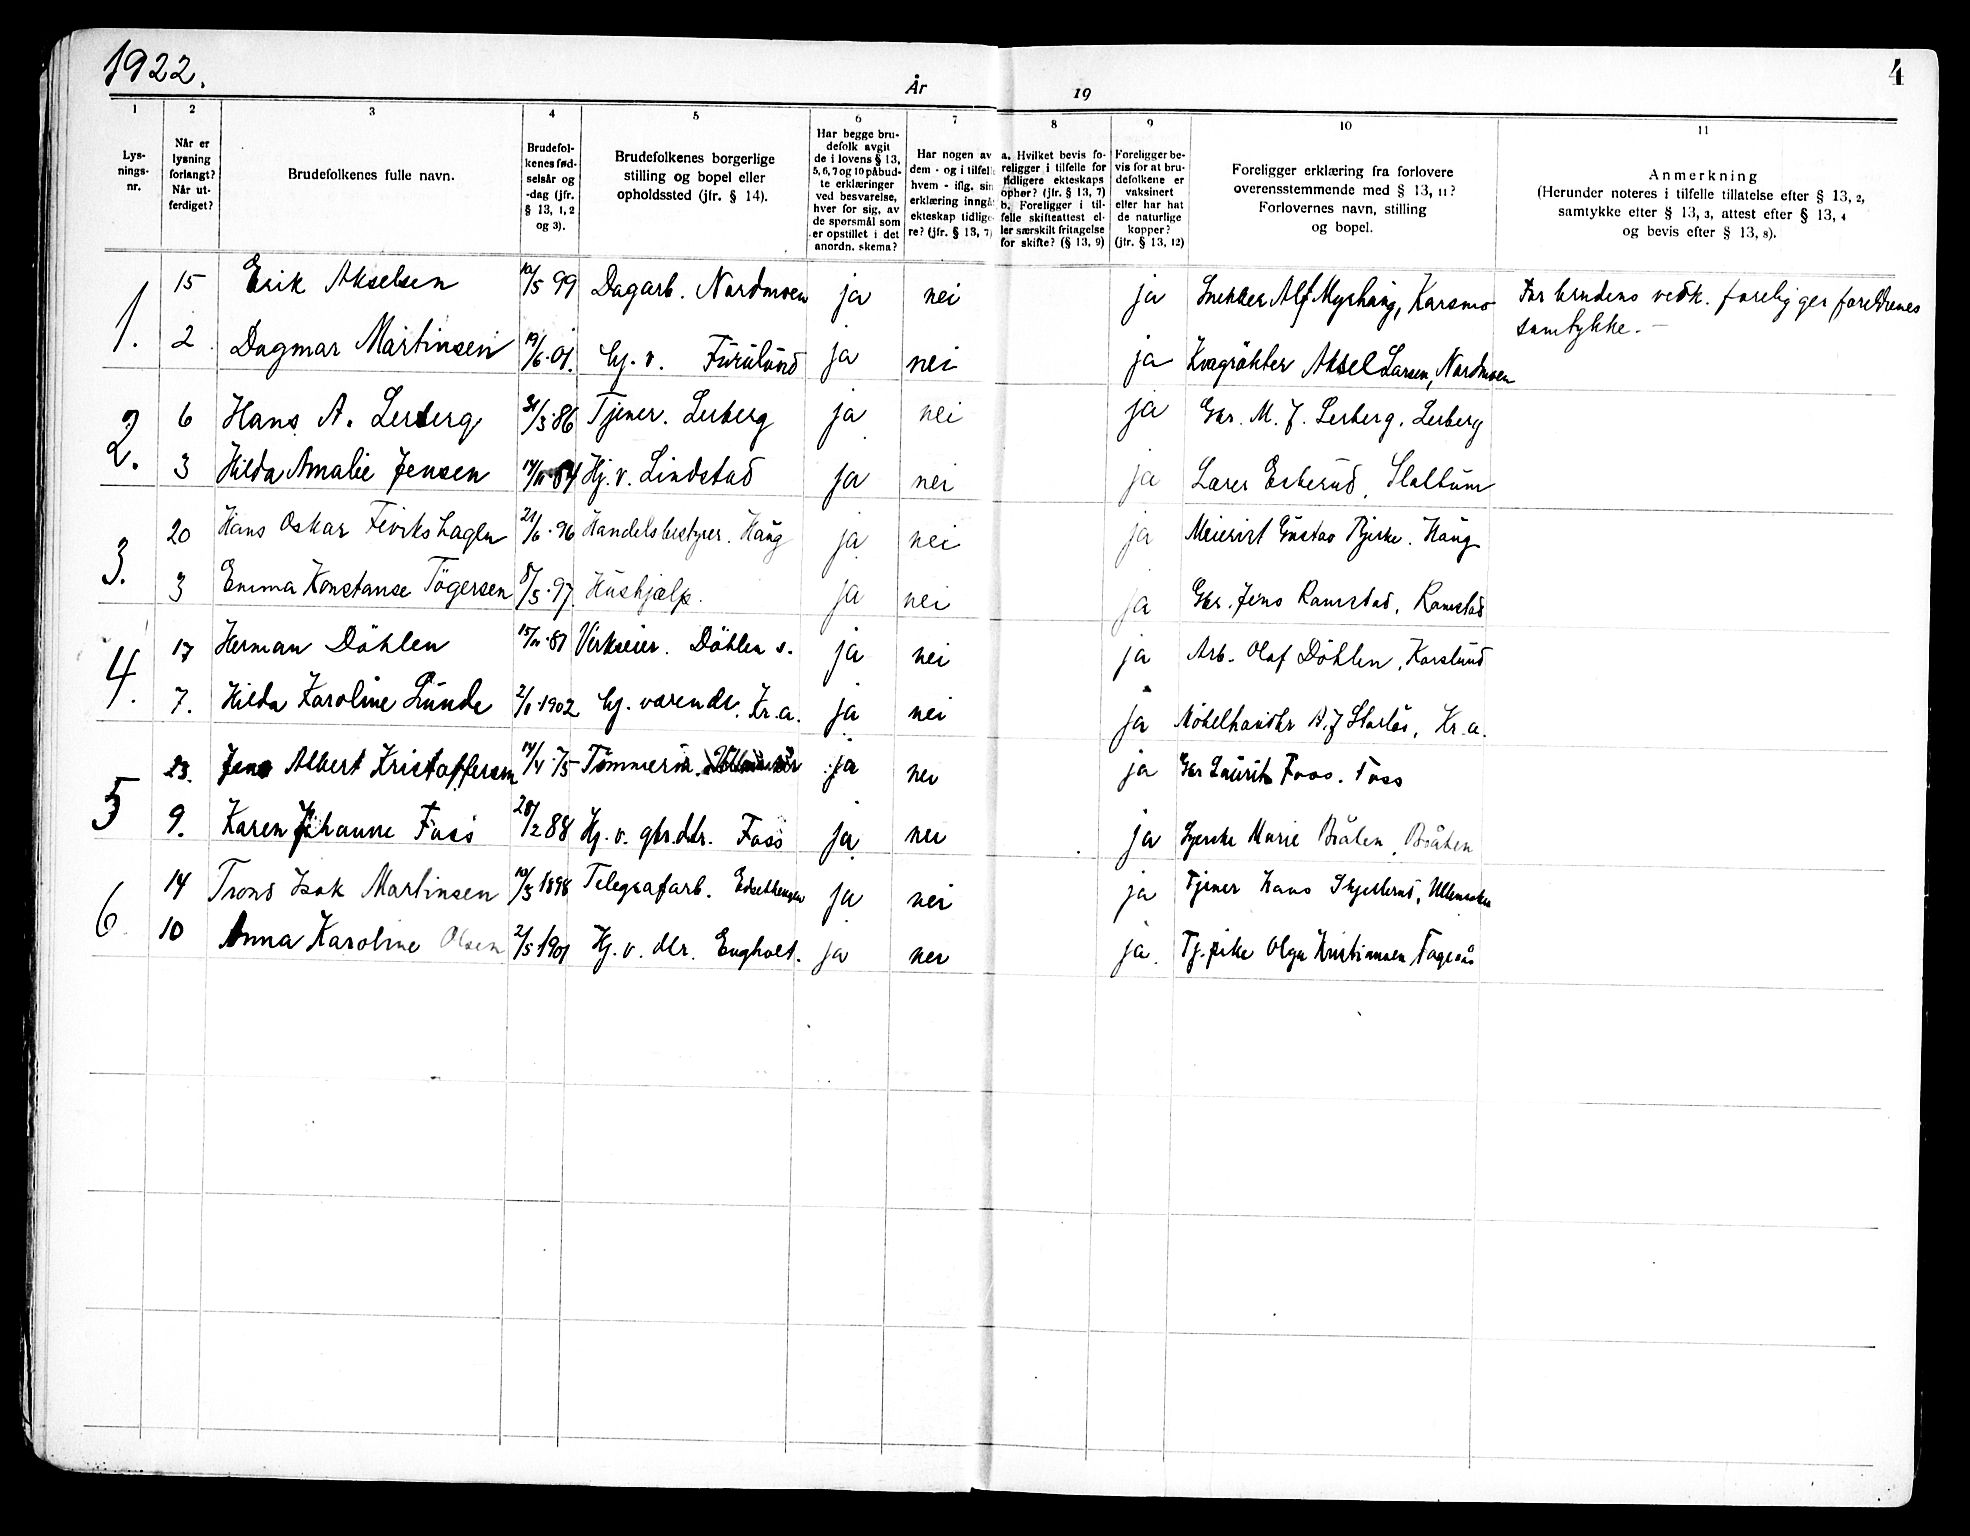 1922.
År
19
4
1
2
3
4
5
6
7
8
9
10
11
Lys-
nings-
nr.
Når er
lysning
forlangt?
Når ut-
ferdiget?
Brudefolkenes fulle navn.
Brudefol-
kenes fød-
selsår og
-dag (jfr.
§ 13, 1, 2
og 3).
Brudefolkenes borgerlige
stilling og bopel eller
opholdssted (jfr. § 14).
Har begge bru-
defolk avgit
de i lovens § 13,
5, 6, 7 og 10 påbud-
te erklæringer
ved besvarelse,
hver for sig, av
de spørsmål som
er opstillet i det
anordn. skema?
Har nogen av
dem - og i tilfelle
hvem - iflg. sin
erklæring inngåt
ekteskap tidlige-
re? (jfr. § 13, 7)
a. Hvilket bevis fo-
religger i tilfelle for
tidligere ekteskaps
ophør? (jfr. § 13, 7)
b. Foreligger i til-
felle skifteattest el-
ler særskilt fritagelse
for skifte? (§ 13, 9)
Foreligger be-
vis for at bru-
defolkene er
vaksinert
eller har hat
de naturlige
kopper?
(jfr. § 13, 12)
Foreligger erklæring fra forlovere
overensstemmende med § 13, 11?
Forlovernes navn, stilling
og bopel.
Anmerkning
(Herunder noteres i tilfelle tillatelse efter § 13, 2,
samtykke efter § 13, 3, attest efter § 13, 4
og bevis efter § 13, 8).
1. 15 Erik Akselsen 10/5 99 Dagarb. Nordmoen ja nei ja Snekker Alf Myrhaug, Karsmo For brudens vedk. foreligger foreldrenes
samtykke. —
2 Dagmar Martinsen 19/6.01. hj. v. Furulund ja nei ja Kvegrökter Aksel Larsen, Nordmoen
2. 6 Hans A. Lerberg 31/3.86 Tjener. Lerberg ja nei ja Gbr. M. J. Lerberg, Lerberg
3 Hilda Amalie Jensen Hj. v. Lindstad ja nei ja Lærer
3. 20 Hans Oskar 21/6.96 Handelsbestyrer. Haug ja nei ja Meierist Gustav Bjerke. Haug
3 Emma Konstanse Tögersen 8/5.97. Hushjælp. ja nei ja Gbr. Jens Ramstad, Ramstad
4. 17 Herman Döhlen Verkseier. Döhlen s. ja nei ja Arb. Olaf Döhlen, Karslund
7. Hilda Karoline Lunde hj. værende. Kr.a. ja nei ja Möbelhandlr Kr.a.
5 23. Jens Albert Kristoffersen 14/4.75 ja nei ja Gbr Laurits Foss. Foss
9. Karen Johanne Foss 28/2 88 Hj. v. gbr.dtr. Foss ja nei ja Syerske Marie Bråten, Bråten
6. 14 Trond Isak Martinsen 10/3 1898 Telegrafarb. ja nei ja Tjener Hans
10 Anna Karoline Olsen 2/5 1901 Hj. v. dtr. Engholt. ja nei ja. Tj.pike Olga Kristiansen